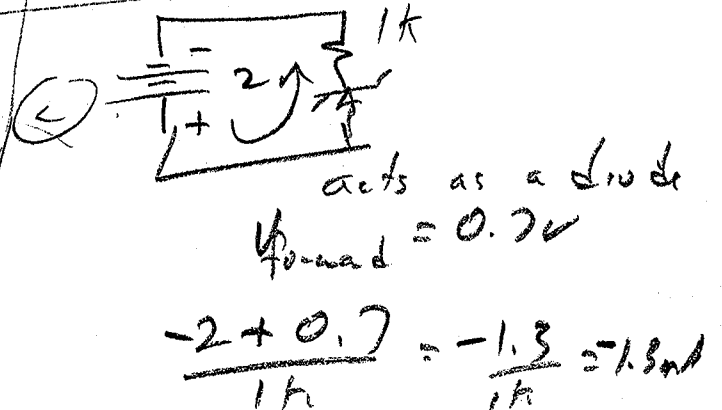 1k
-
2
+
acts as a diode
V forward = 0.7v
-2 + 0.7 / 1k = -1.3 / 1k = -1.3mA